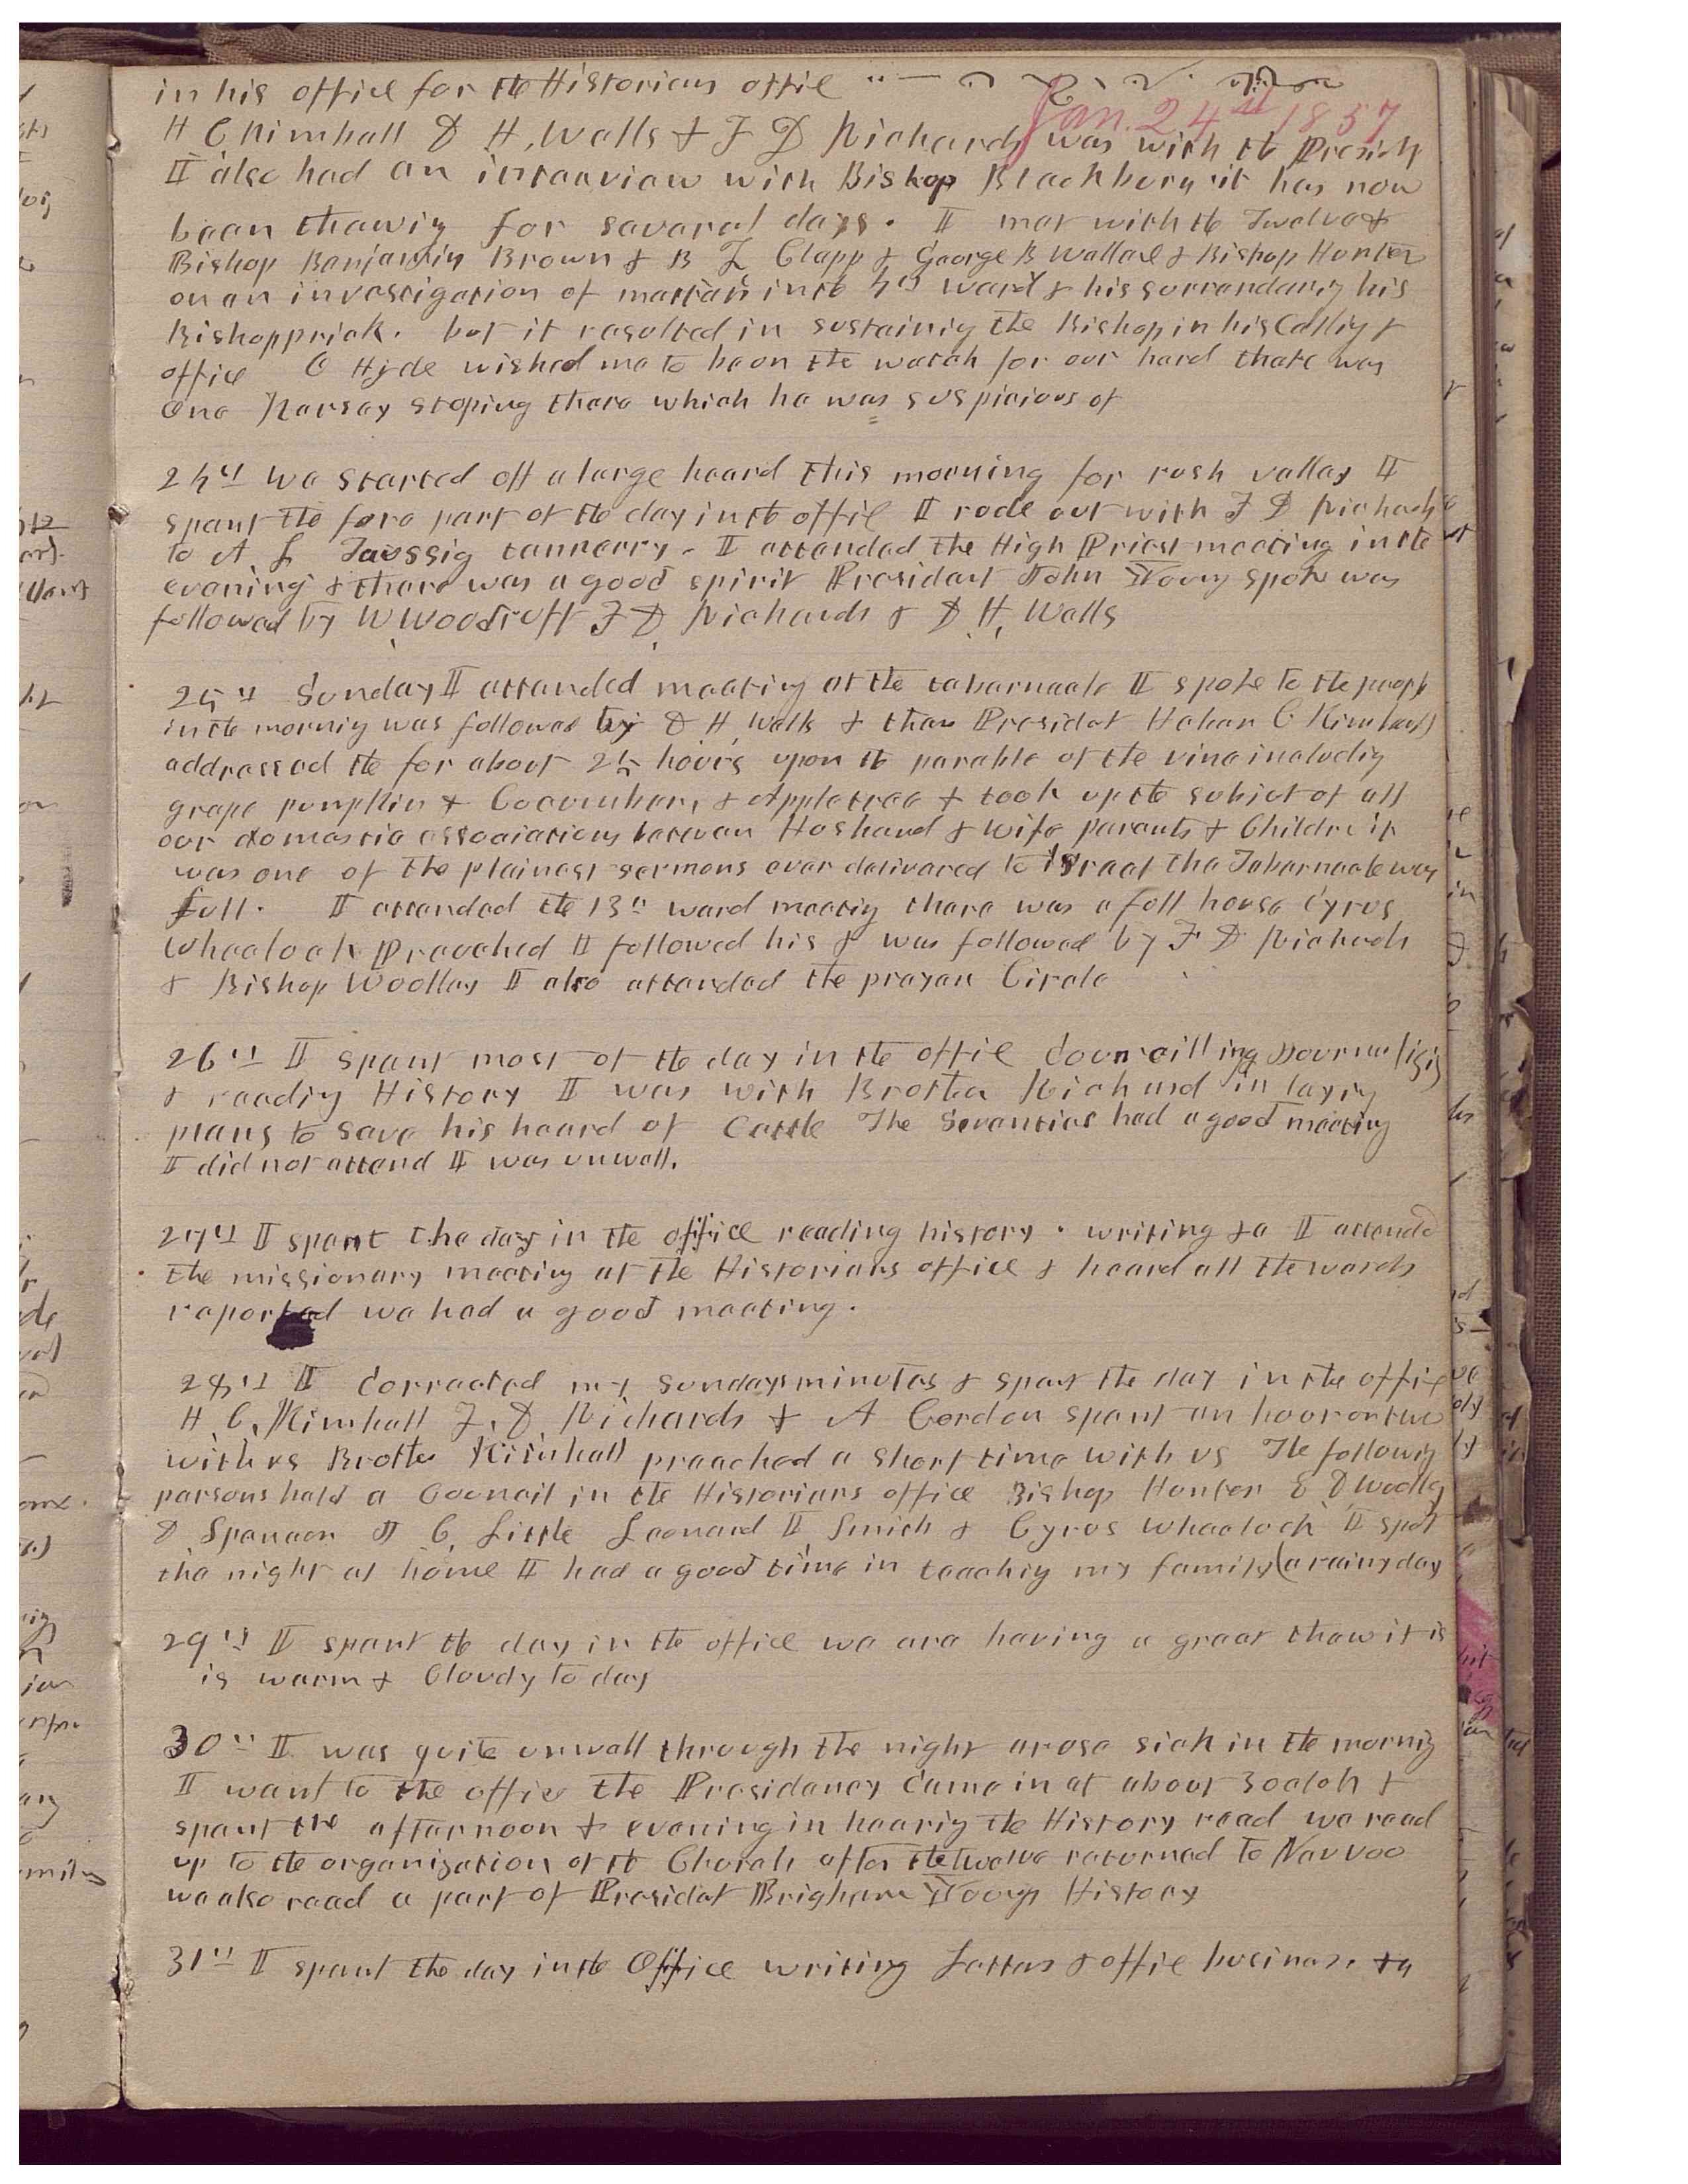 in his office for the Historians office
Jan. 24th 1857
H C Kimball D H, Wells & F D Richards was with the Presidt
I also had an interview with Bishop Blackbory it has now
been thawing for several days. I met with the Twelve &
Bishop Benjamin Brown & B L Clapp & George B Wallace & Bishop Hunter
on an investigation of matters in the 4th ward & his surrendering his
Bishopprick. but it resulted in sustaining the Bishop in his Calling &
office O Hyde wished me to be on the watch for our hard there was
One stoping there which he was suspicious of
24th we started off a large heard this morning for rush valley I
spent the fore part of the day in the office I rode out with F D Richards
to A L Taussig tannerry. I attended the High Priest meeting in the
evening & there was a good spirit President John Young spoke was
followed by W Woodruff F D, Richards & D H, Wells
25th Sunday I attended meeting at the tabernacle I spoke to the people
in the morning was followed by D H, Wells & then Presidet Heber C Kimball
addressed the for about 2½ hours upon the parable of the vine includig
grape pumpkin & Coocumbers & Appletree & took up the subject of all
our domestic associations between Husband & wife parents & Childrn it
was one of the plainest sermons ever delivered to Israel the Tabernacle was
full. I attended the 13th ward meetig there was a full house Cyrus
Wheelock Preached I followed his & was followed by F D Richards
& Bishop Woolley I also attended the prayer Circle
26th I spent most of the day in the office Councilling Journalizig
& readig History I was with Brother Richard in layig
plans to save his heard of Cattle The Seventies had a good meeting
I did not attend I was unwell.
27th I spent the day in the office reading history. writing &c I attended
the missionary meeting at the Historians office & heard all the wards
reported we had a good meeting.
28th I Corrected my Sundays minutes & spent the day in the office
H. C. Kimball F. D, Richards & A Cordon spent an hour or two
with us Brother Kimball preached a short time with us The followig
persons held a Council in the Historians office Bishop Hunter E D Woolley
D Spencer J C, Little Leonard I Smith & Cyrus Wheelock I spet
the night at home I had a good time in teachig my family (a rainy day
29th I spent the day in the office we are having a great thaw it is
is warm & Cloudy to day
30th I was quite unwell through the night arose sick in the mornig
I went to the office the Presidency Came in at about 3 oclok &
spent the afternoon & evening in hearig the History read we read
up to the organization of the Church after the twelve returned to Nauvoo
we also read a part of Presidet Brigham Youngs History
31st I spent the day in the Office writing Letters & office business &c